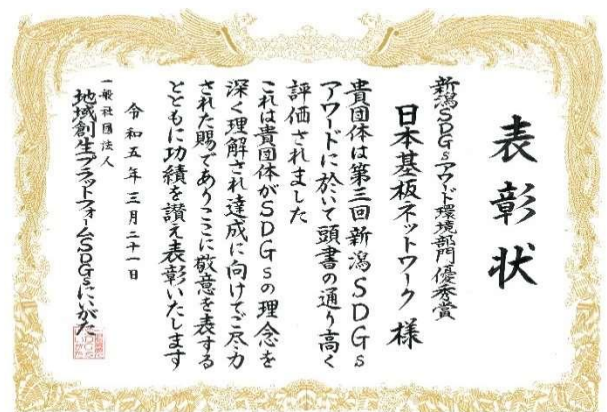 表彰状
新潟SDGsアワード環境部門優秀賞
日本基板ネットワーク 様
貴団体は第三回新潟SDGs
アワードに於いて頭書の通り高く
評価されました
これは貴団体がSDGsの理念を
深く理解され達成に向けてご尽力
された賜でありここに敬意を表する
とともに功績を讃え表彰いたします
令和五年三月二十一日
一般社団法人
地域創生プラットフォームSDGsにいがた